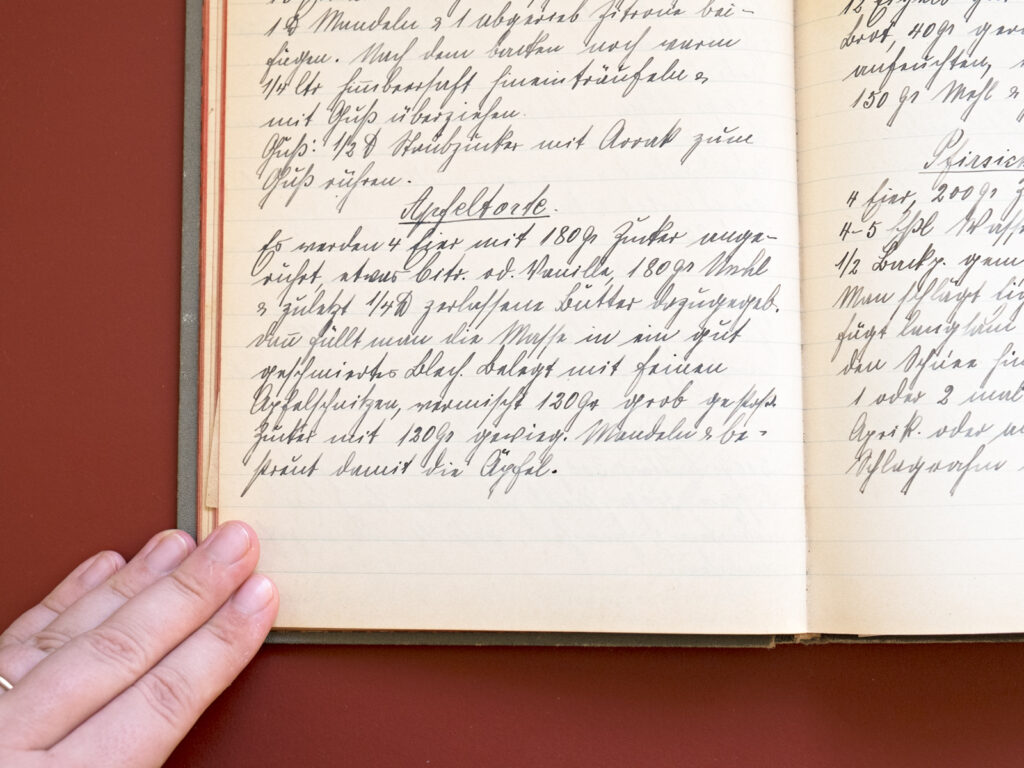 1 ℔ Mandeln & 1 abgerieb Zitrone bei-
fügen. Nach dem backen noch warm
1/4 ltr Himbeersaft hineinträufeln &
mit Guß überziehen.
Guß: 1/2 ℔ Staubzucker mit Arrak zum
Guß rühren.
Apfeltorte.
Es werden 4 Eier mit 180 gr Zucker ange-
rührt, etwas Citr. od. Vanille, 180 gr Mehl
& zuletzt 1/4 ℔ zerlassene Butter dazugegeb.
Dañ füllt man die Masse in ein gut
geschmiertes Blech. Belegt mit feinen
Apfelschnitzen, vermischt 120 gr grob gestoß.
Zucker mit 120 gr gewieg. Mandeln & be-
streut damit die Äpfel.
Brot, 40 gr
anfeuchten,
150 gr Mehl &
Pfirsich
4 Eier, 200 gr
4-5 Eßl Wass
1/2 Backp. gem
Man schlägt
fügt langsam
den Schnee
1 oder 2 mal
Aprik. oder
Schlagrahm